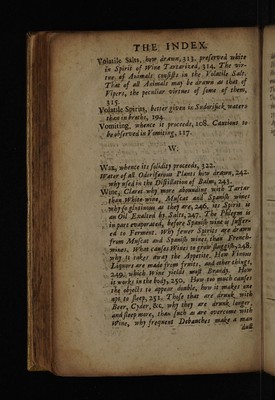 THE INDEX.
Volatile Salts, how drawn, 313. preserved white
in Spirit of Wine Tartarized, 314. The vir-
tue of Animals consists in the Volatile Salt.
That of all Animals may be drawn as that of
Vipers, the peculiar virtues of some of them,
315.
Volatile Spirits, better given in Sudorifick waters
than in broths, 194.
Vomiting, whence it proceeds, 108. Cautions to
be observed in Vomiting, 117.
W.
Wax, whence its solidity proceeds, 322.
Water of all Odoriferous Plants how drawn, 242.
why used in the Distillation of Balm, 243.
Wine, Claret why more abounding with Tartar
than White-wine, Muscat and Spanish wines
why so glutinous as they are, 246. its Spirit is
an Oil Exalted by Salts, 247. The Phlegm is
in part evaporated, before Spanish wine is suffer-
ed to Ferment. Why fewer Spirits are drawn
from Muscat and Spanish wines, than French-
wines. What causes Wines to grow sluggish, 248.
why it takes away the Appetite. How Vinous
Liquors are made from fruits, and other things,
249. which Wine yields most Brandy. How
it works in the body, 250. How too much causes
the objects to appear double, how it makes one
apt to sleep, 251. Those that are drunk with
Beer, Cyder, &c. why they are drunk longer,
and sleep more, than such as are overcome with
Wine, why frequent Debauches make a man
dull